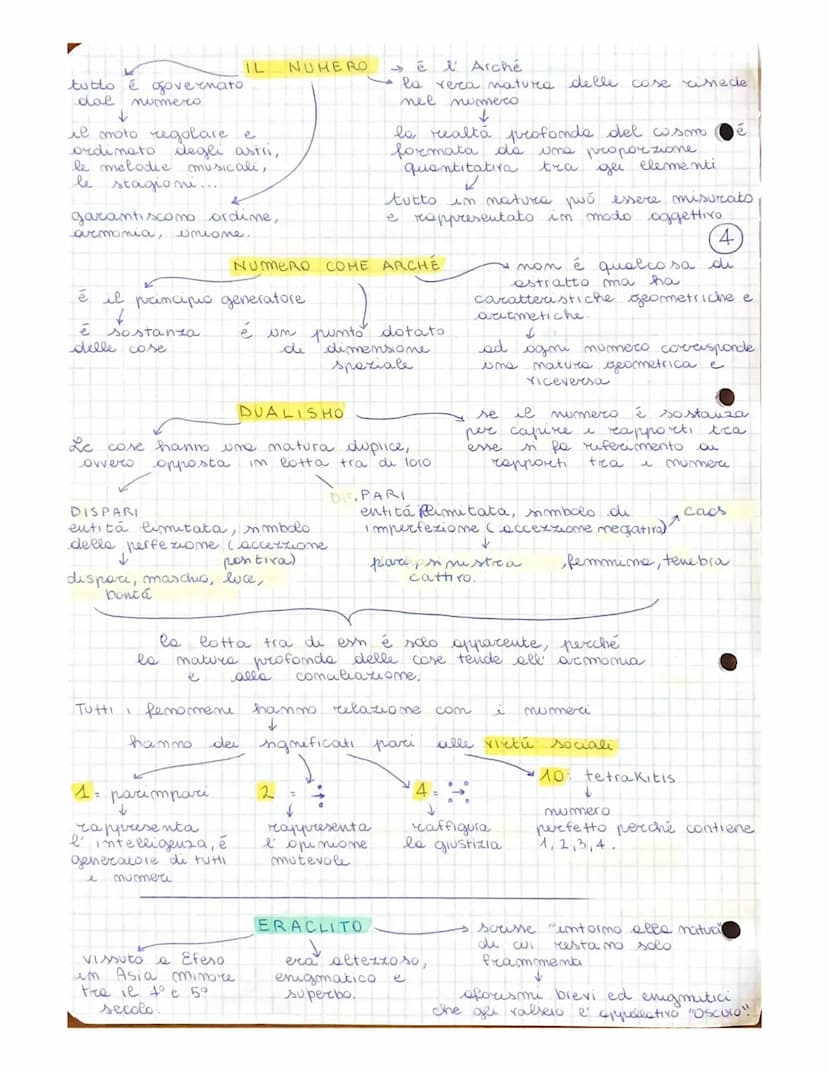 IL NUMERO → é l' Arché
tutto é governato
dal numero
↓
il moto regolare e
ordinato degli astri,
le melodie musicali,
le stagioni...
garantiscono ordine,
armonia, unione.
la vera natura delle cose risiede
nel numero
↓
la realtá profonda del cosmo é
formata da una proporzione
quantitativa tra gli elementi
tutto in natura puó essere misurato
e rappresentato in modo oggettivo
4
NUMERO COME ARCHÉ
é il principio generatore
↓
é sostanza
delle cose
é un punto dotato
di dimensione
spaziale
non é qualcosa di
astratto ma ha
caratteristiche geometriche e
aritmetiche.
↓
ad ogni numero corrisponde
una natura geometrica e
viceversa
DUALISMO
Le cose hanno una natura duplice,
ovvero opposta in lotta tra di loro
se il numero é sostanza
per capire i rapporti tra
esse si fa riferimento ai
rapporti tra i numeri
DISPARI
entitá limitata, simbolo
della perfezione (accezzione
positiva)
↓
dispari, maschio, luce,
bontá
PARI
entitá illimitata, simbolo di
imperfezione (accezzione negativa) → caos
↓
pari, sinistra, femmina, tenebra
cattivo.
la lotta tra di essi é solo apparente, perché
la natura profonda delle cose tende all' armonia
e alla conciliazione.
Tutti i fenomeni hanno relazione con i numeri
↓
hanno dei significati pari alle virtú sociali
1 = parimpari
↓
rappresenta
l' intelligenza, é
generatore di tutti
i numeri
2 =
↓
rappresenta
l' opinione
mutevole
4 =
↓
raffigura
la giustizia
10: tetraKitis
↓
numero
perfetto perché contiene
1, 2, 3, 4.
ERACLITO
vissuto a Efeso
in Asia minore
tra il 4° e 5°
secolo.
era altezzoso,
enigmatico e
superbo.
scrisse "intorno alla natura"
di cui restano solo
frammenti
↓
aforismi brevi ed enigmatici
che gli valsero l' appellativo "OSCURO"